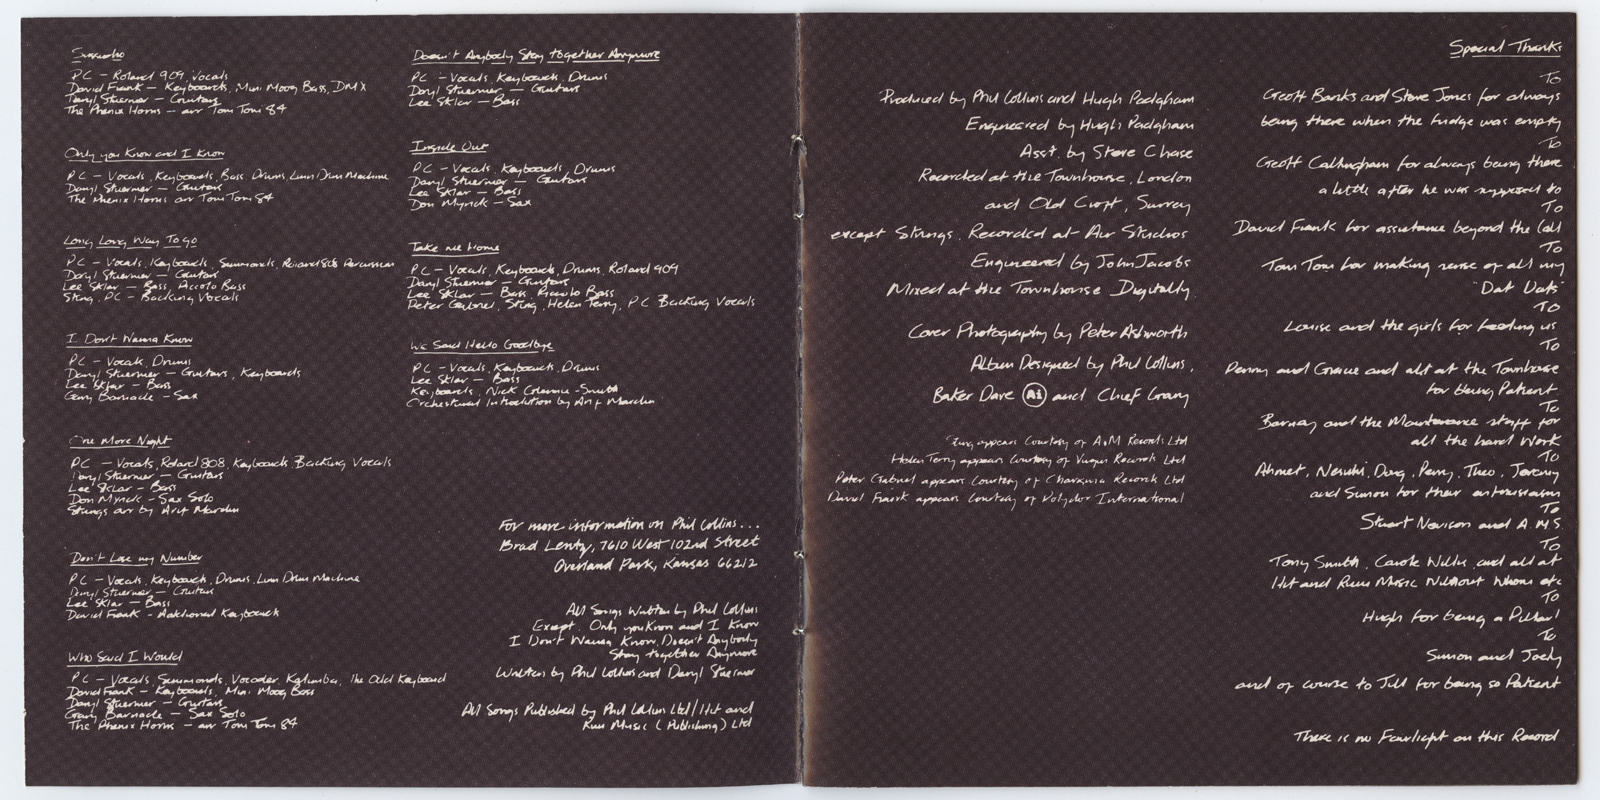 Sussudio
PC – Roland 909, Vocals
David Frank – Keyboards, Mini Moog Bass, DMX
Daryl Stuermer – Guitars
The Phenix Horns – arr Tom Tom 84
Only you Know and I Know
PC – Vocals, Keyboards, Bass, Drums, Linn Drum Machine
Daryl Stuermer – Guitars
The Phenix Horns arr Tom Tom 84
Long Long Way To go
PC – Vocals, Keyboards, Simmonds, Roland 808 Percussion
Daryl Stuermer – Guitars
Lee Sklar – Bass, Piccolo Bass
Sting, PC – Backing Vocals
I Don't Wanna Know
PC – Vocals, Drums
Daryl Stuermer – Guitars, Keyboards
Lee Sklar – Bass
Gary Barnacle – Sax
One More Night
PC – Vocals, Roland 808, Keyboards, Backing Vocals
Daryl Stuermer – Guitars
Lee Sklar – Bass
Don Myrick – Sax Solo
Strings arr by Arif Mardin
Don't Lose my Number
PC – Vocals, Keyboards, Drums, Linn Drum Machine
Daryl Stuermer – Guitars
Lee Sklar – Bass
David Frank – Additional Keyboards
Who Said I Would
PC – Vocals, Simmonds, Vocoder, Kalimba, The Odd Keyboard
David Frank – Keyboards, Mini Moog Bass
Daryl Stuermer – Guitars
Gary Barnacle – Sax Solo
The Phenix Horns – arr Tom Tom 84
Doesn't Anybody Stay together Anymore
PC – Vocals, Keyboards, Drums
Daryl Stuermer – Guitars
Lee Sklar – Bass
Inside Out
PC – Vocals, Keyboards, Drums
Daryl Stuermer – Guitars
Lee Sklar – Bass
Don Myrick – Sax
Take me Home
PC – Vocals, Keyboards, Drums, Roland 909
Daryl Stuermer – Guitars
Lee Sklar – Bass, Piccolo Bass
Peter Gabriel, Sting, Helen Terry, PC Backing Vocals
We Said Hello Goodbye
PC – Vocals, Keyboards, Drums
Lee Sklar – Bass
Keyboards, Nick Glennie-Smith
Orchestral Introduction by Arif Mardin
For more information on Phil Collins...
Brad Lentz, 7610 West 102nd Street
Overland Park, Kansas 66212
All Songs Written by Phil Collins
Except. Only you Know and I Know
I Don't Wanna Know, Doesn't Anybody
Stay together Anymore
Written by Phil Collins and Daryl Stuermer
All Songs Published by Phil Collins Ltd/Hit and
Run Music (Publishing) Ltd
Produced by Phil Collins and Hugh Padgham
Engineered by Hugh Padgham
Asst. by Steve Chase
Recorded at the Townhouse, London
and Old Croft, Surrey
except Strings. Recorded at Air Studios
Engineered by John Jacobs
Mixed at the Townhouse Digitally
Cover Photography by Peter Ashworth
Album Designed by Phil Collins,
Baker Dave Ai and Chief Grany
Sting appears Courtesy of A&M Records Ltd
Helen Terry appears Courtesy of Virgin Records Ltd
Peter Gabriel appears Courtesy of Charisma Records Ltd
David Frank appears Courtesy of Polydor International
Special Thanks
To
Geoff Banks and Steve Jones for always
being there when the fridge was empty
To
Geoff Callingham for always being there
a little after he was supposed to
To
David Frank for assistance beyond the Call
To
Tom Tom for making sense of all my
'Dat Dats'
To
Louise and the girls for feeding us
To
Penny and Gracie and all at the Townhouse
for being Patient
To
Barney and the Maintenance staff for
all the hard Work
To
Ahmet, Nesuhi, Doug, Perry, Theo, Jeremy
and Simon for their enthusiasm
To
Stuart Nevison and A.M.S.
To
Tony Smith, Carole Willis and all at
Hit and Run Music Without Whom etc
To
Hugh for being a Pillar!
To
Simon and Joely
and of course to Jill for being so Patient
There is no Fairlight on this Record